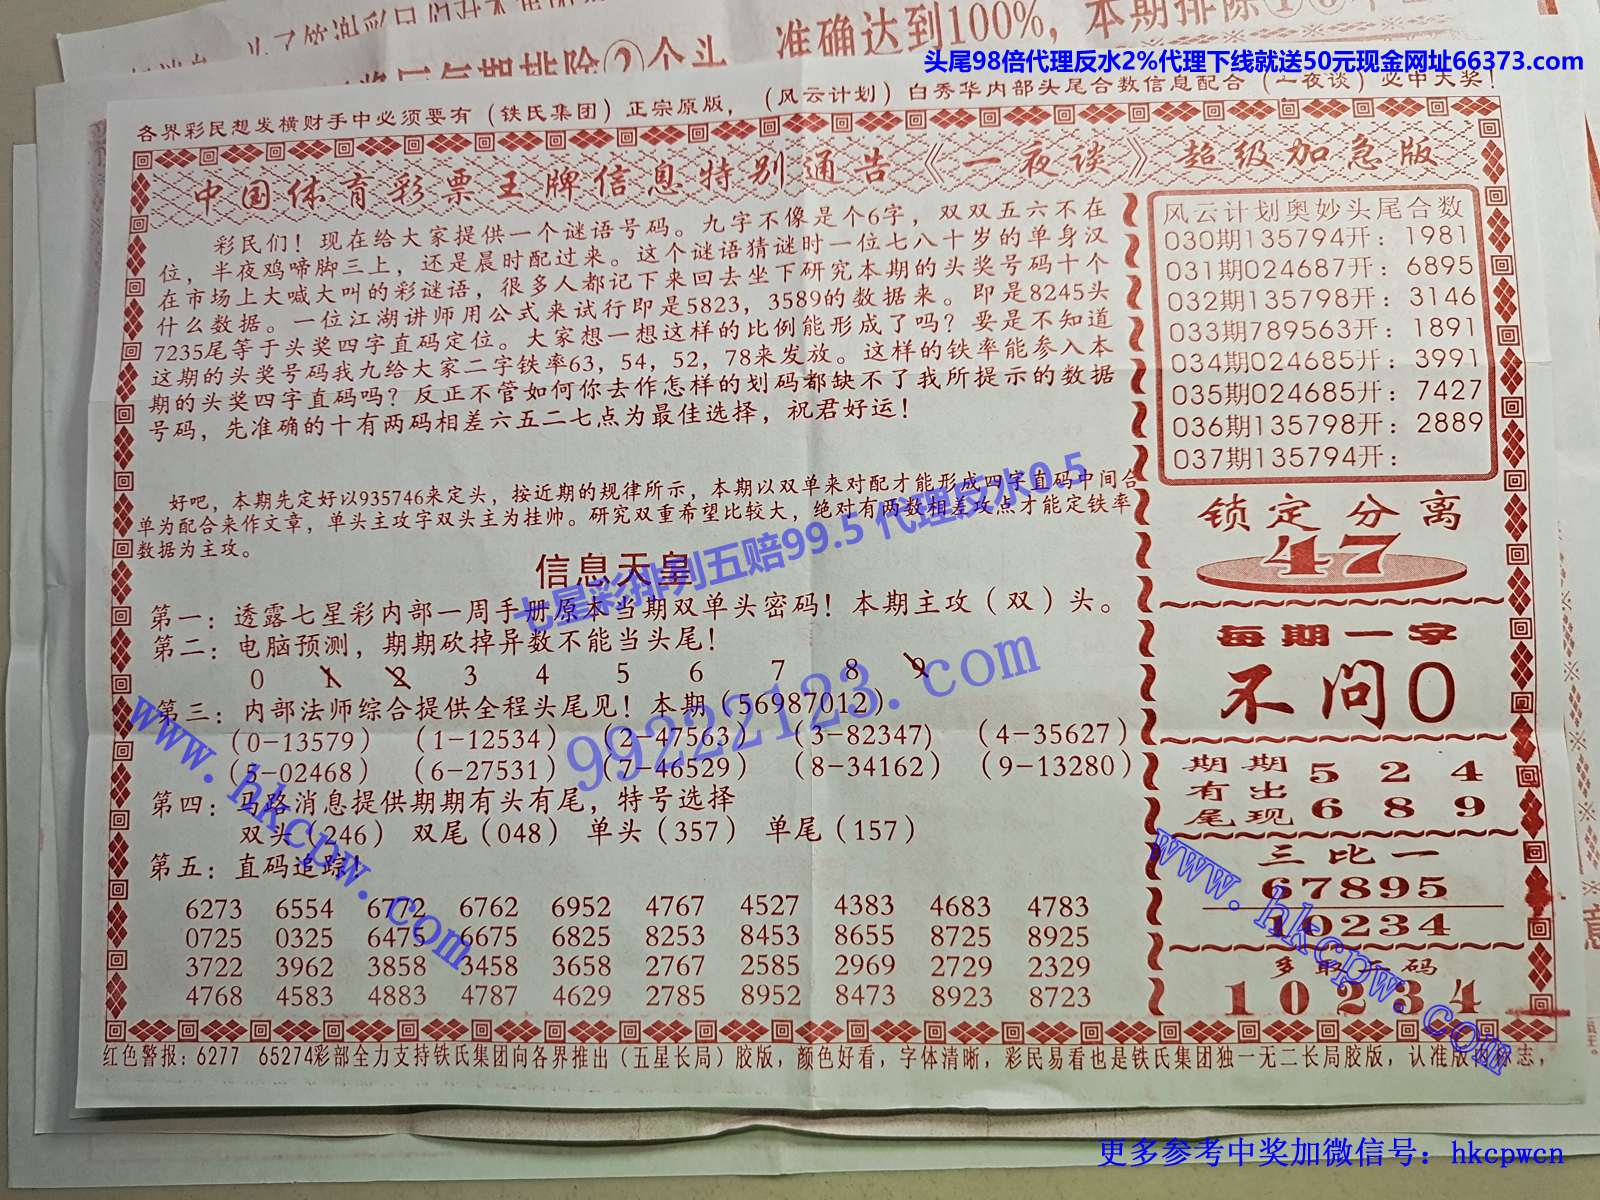 准确达到100%，本期排除①⑥
每期排除②个头
头尾98倍代理反水2%代理下线就送50元现金网址66373.com
各界彩民想发横财手中必须要有（铁氏集团）正宗原版，（风云计划）白秀华内部头尾合数信息配合（一夜谈）必中大奖！
中国体育彩票王牌信息特别通告《一夜谈》超级加急版
彩民们！现在给大家提供一个谜语号码。九字不像是个6字，双双五六不在
位，半夜鸡啼脚三上，还是晨时配过来。这个谜语猜谜时一位七八十岁的单身汉
在市场上大喊大叫的彩谜语，很多人都记下来回去坐下研究本期的头奖号码十个
什么数据。一位江湖讲师用公式来试行即是5823，3589的数据来。即是8245头
7235尾等于头奖四字直码定位。大家想一想这样的比例能形成了吗？要是不知道
这期的头奖号码我九给大家二字铁率63，54，52，78来发放。这样的铁率能参入本
期的头奖四字直码吗？反正不管如何你去作怎样的划码都缺不了我所提示的数据
号码，先准确的十有两码相差六五二七点为最佳选择，祝君好运！
好吧，本期先定好以935746来定头，按近期的规律所示，本期以双单来对配才能形成四字直码中间合
单为配合来作文章，单头主攻字双头主为挂帅。研究双重希望比较大，绝对有两数相差攻点才能定铁率
数据为主攻。
信息天皇
七星彩排列五赔99.5 代理反水0.5
第一：透露七星彩内部一周手册原本当期双单头密码！本期主攻（双）头。
第二：电脑预测，期期砍掉异数不能当头尾！
0 1 2 3 4 5 6 7 8 9
第三：内部法师综合提供全程头尾见！本期（56987012）
（0-13579） （1-12534） （2-47563） （3-82347) （4-35627）
（5-02468） （6-27531） （7-46529） （8-34162） （9-13280）
99222123.com
第四：马路消息提供期期有头有尾，特号选择
双头（246） 双尾（048） 单头（357） 单尾（157）
第五：直码追踪！
6273 6554 6772 6762 6952 4767 4527 4383 4683 4783
0725 0325 6475 6675 6825 8253 8453 8655 8725 8925
3722 3962 3858 3458 3658 2767 2585 2969 2729 2329
4768 4583 4883 4787 4629 2785 8952 8473 8923 8723
www.hkcpw.com
风云计划奥妙头尾合数
030期135794开：1981
031期024687开：6895
032期135798开：3146
033期789563开：1891
034期024685开：3991
035期024685开：7427
036期135798开：2889
037期135794开：
锁定分离
47
每期一字
不问0
期期 5 2 4
有出
尾现 6 8 9
三比一
67895
10234
多取千码
10234
www.hkcpw.com
红色警报：6277 65274彩部全力支持铁氏集团向各界推出（五星长局）胶版，颜色好看，字体清晰，彩民易看也是铁氏集团独一无二长局胶版，认准版权标志，
更多参考中奖加微信号：hkcpwcn